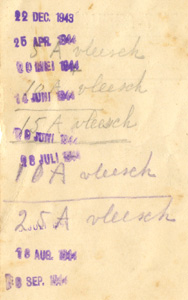 22 DEC. 1943
25 APR. 1944
5 A vleesch
30 MEI 1944
10 A vleesch
14 JUNI 1944
15 A vleesch
JUNI 1944
28 JULI 1944
10 A vleesch
25 A vleesch
18 AUG. 1944
SEP. 1944